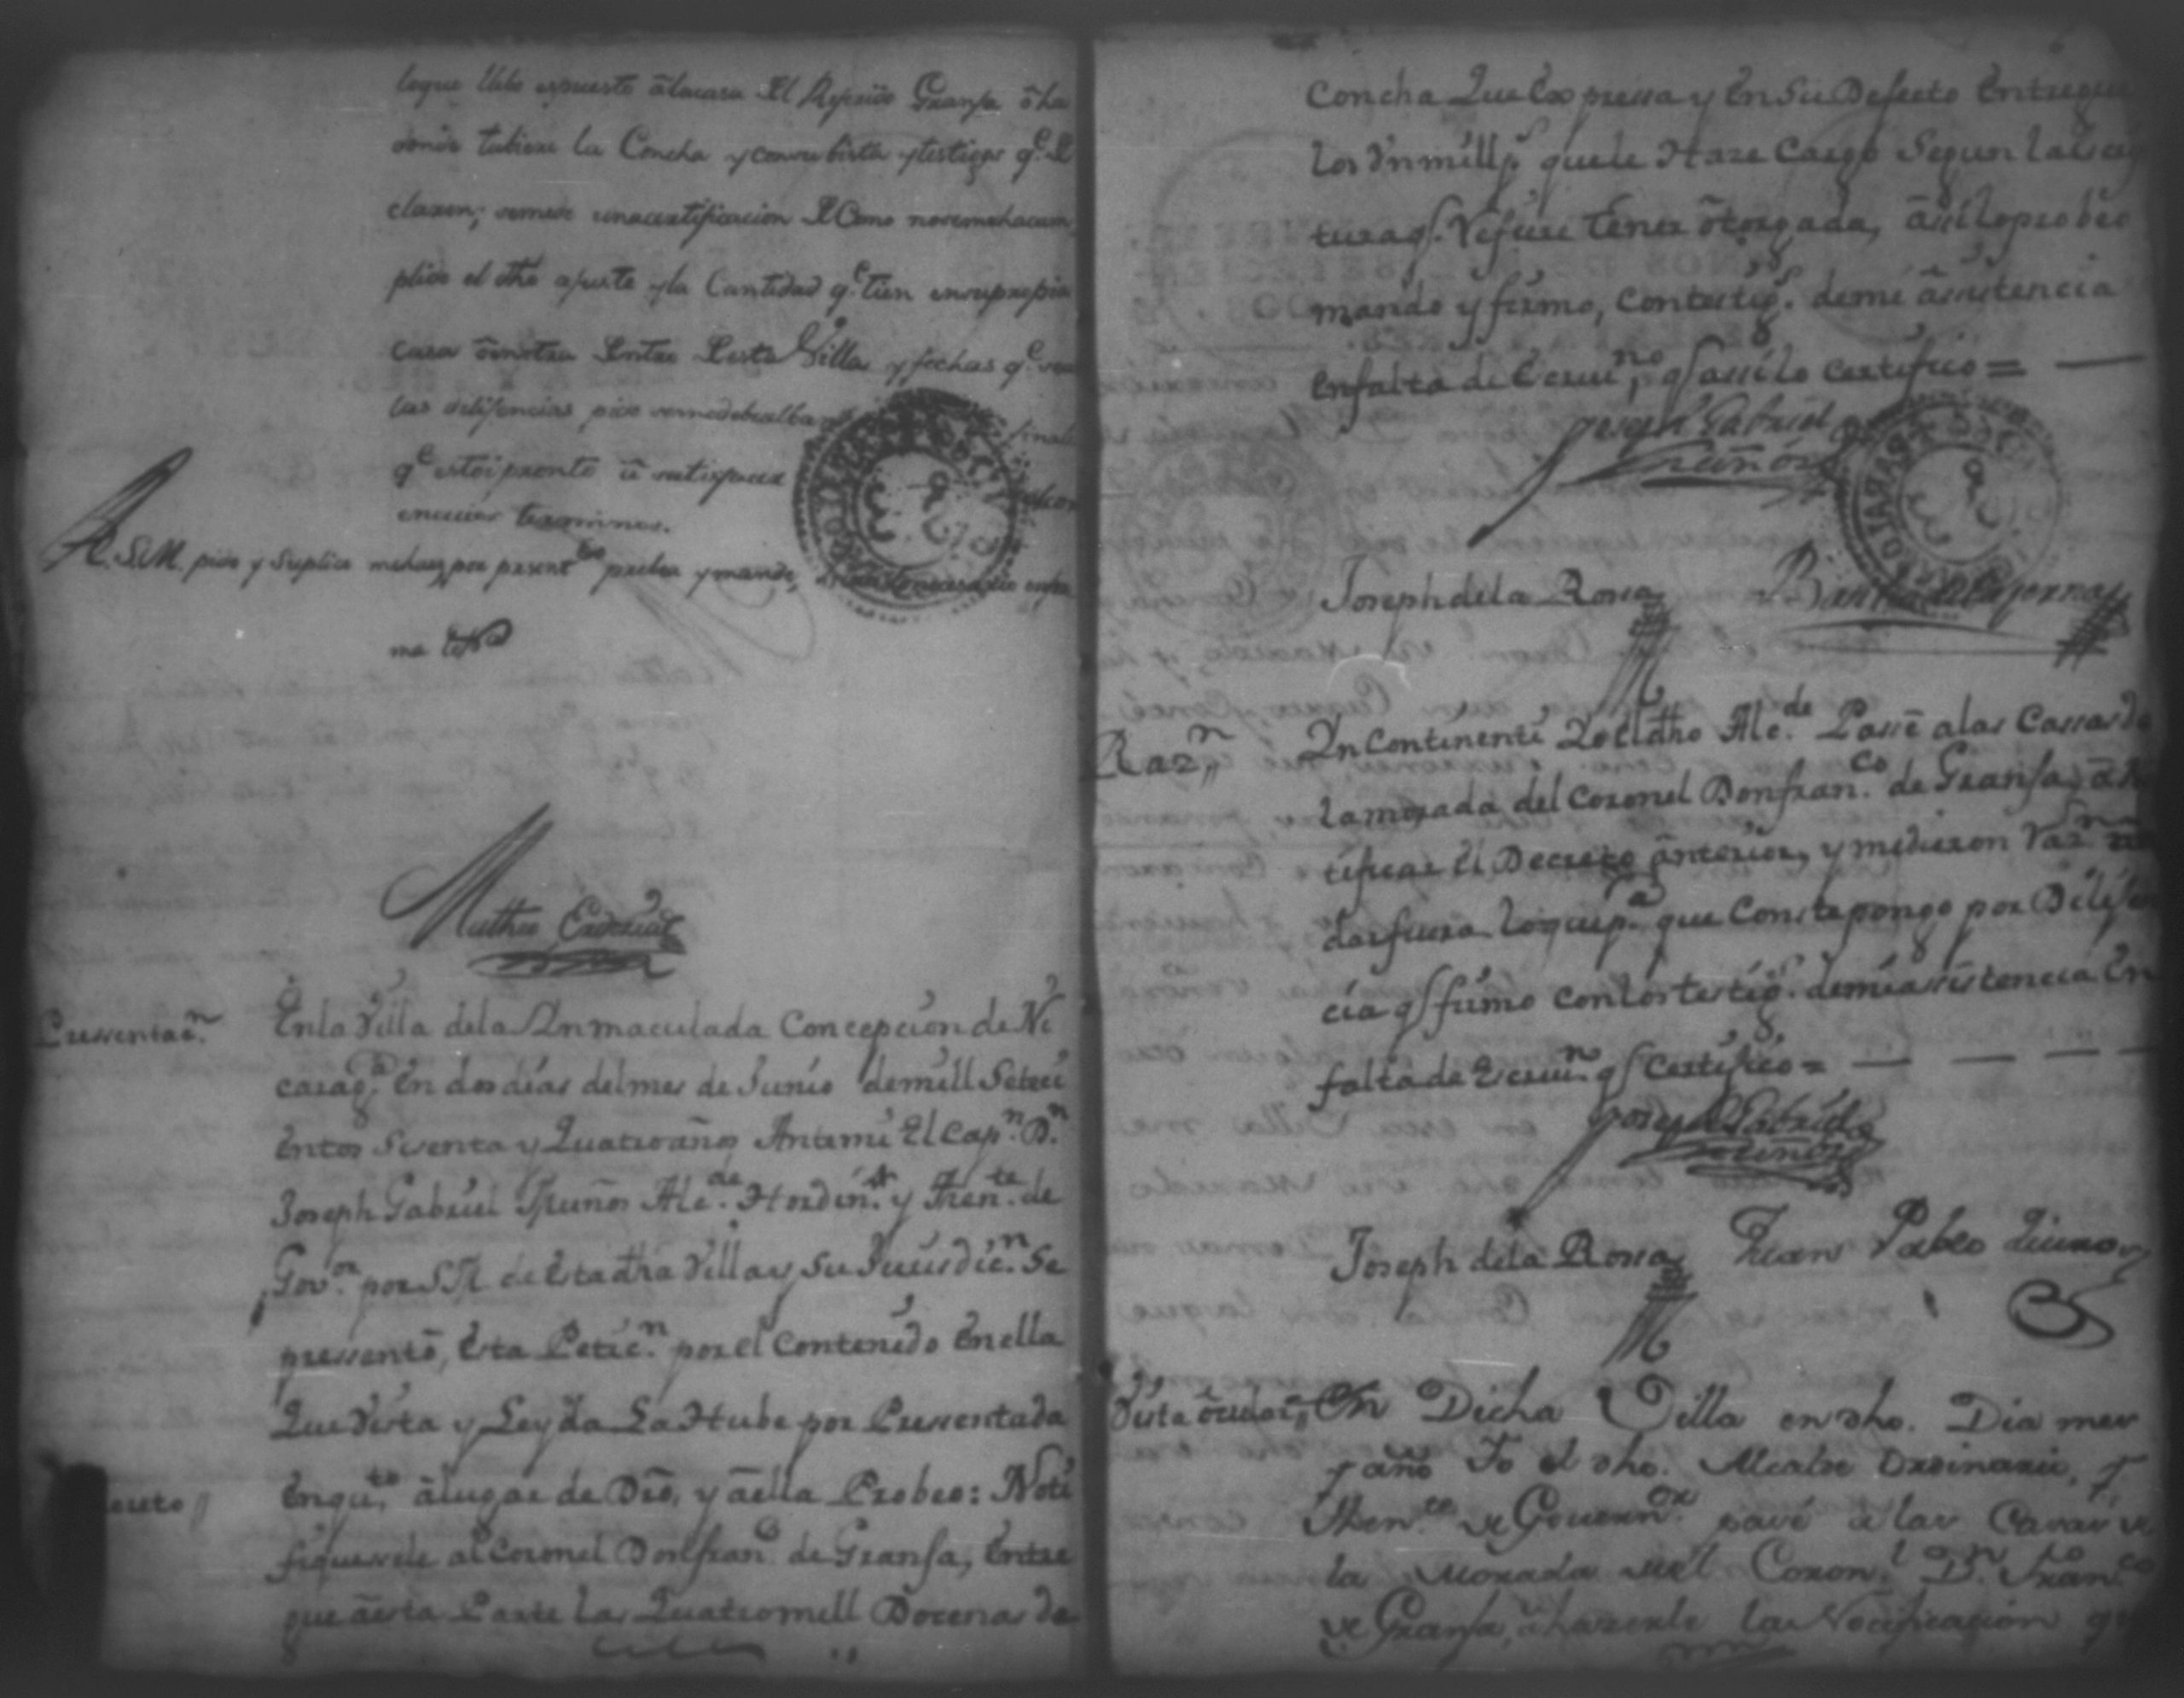 loque llebo espuesto â la casa El Referido Granja ô ha
donde tubiere la Concha y con su bista y testigos q.e
claren; seme de una certificacion de Como nosemehacum
plido el dho ajuste y la Cantidad q.e tien ensupropia
casa ô en otra dentro desta Villa y fechas q.e sean
las dilijencias pido semedebuelban
q.e estoi pronto â satisfacer
encuios terminos.
A SM. pido y Suplico mehaiga por present.do probea y mande,
ma &.a
Matheo
Pressentaz.n En la Villa dela Inmaculada Concepcion de Ni
carag.a En dos dias delmes de Junio demill Setesi
Entos Setenta y Quatro años Antemi El Cap.n D.n
Joseph Gabriel Ale.de Hordin.o y Then.te de
Gov.or por S M de Esta dha Villa y Su Jurisdic.n Se
pressentô, Esta Petic.n por el Contenido En ella
Que Vista y Leyda La Hube por Pressentada
Decreto Enqu.to â lugar de Dro, y âella Probeo: Noti
fiquesele al Coronel Don fran.co de Granja, Entre
gue âesta Parte las Quatromill Docenas de
Concha Que Expressa y En Su Defecto Entregue
los Un mill p.s quele Haze Cargo Segun la Escrip
tura q.e Refiere tener ôtorgada, âsilo probeo
mando y firmo, con testig.s demi âssistencia
En falta de Escriu.no q.e assilo certifico =
Joseph Gabriel
Joseph dela Rossa
Raz.n In Continenti Yo El dho Ale.de Passê alas Cassas de
la morada del Coronel Don fran.co de Granja, â No
tificar El Decreto ânterior, y medieron Raz.n
dar fuera lo que p.a que Conste pongo por Dilijen
cia q.e firmo con los testig.s demi assistencia En
falta de Escriu.no q.e Certifico =
Joseph Gabriel
Joseph dela Rossa Juan Pablo
Vista ôcular En Dicha Villa en dho. Dia mes
y año Yo el dho. Alcalde Ordinario, y
Then.te de Gouern.or pasé a las Casas de
la Morada del Coron.l D.n Fran.co
de Granja, â hazerle la Notificazion q.e